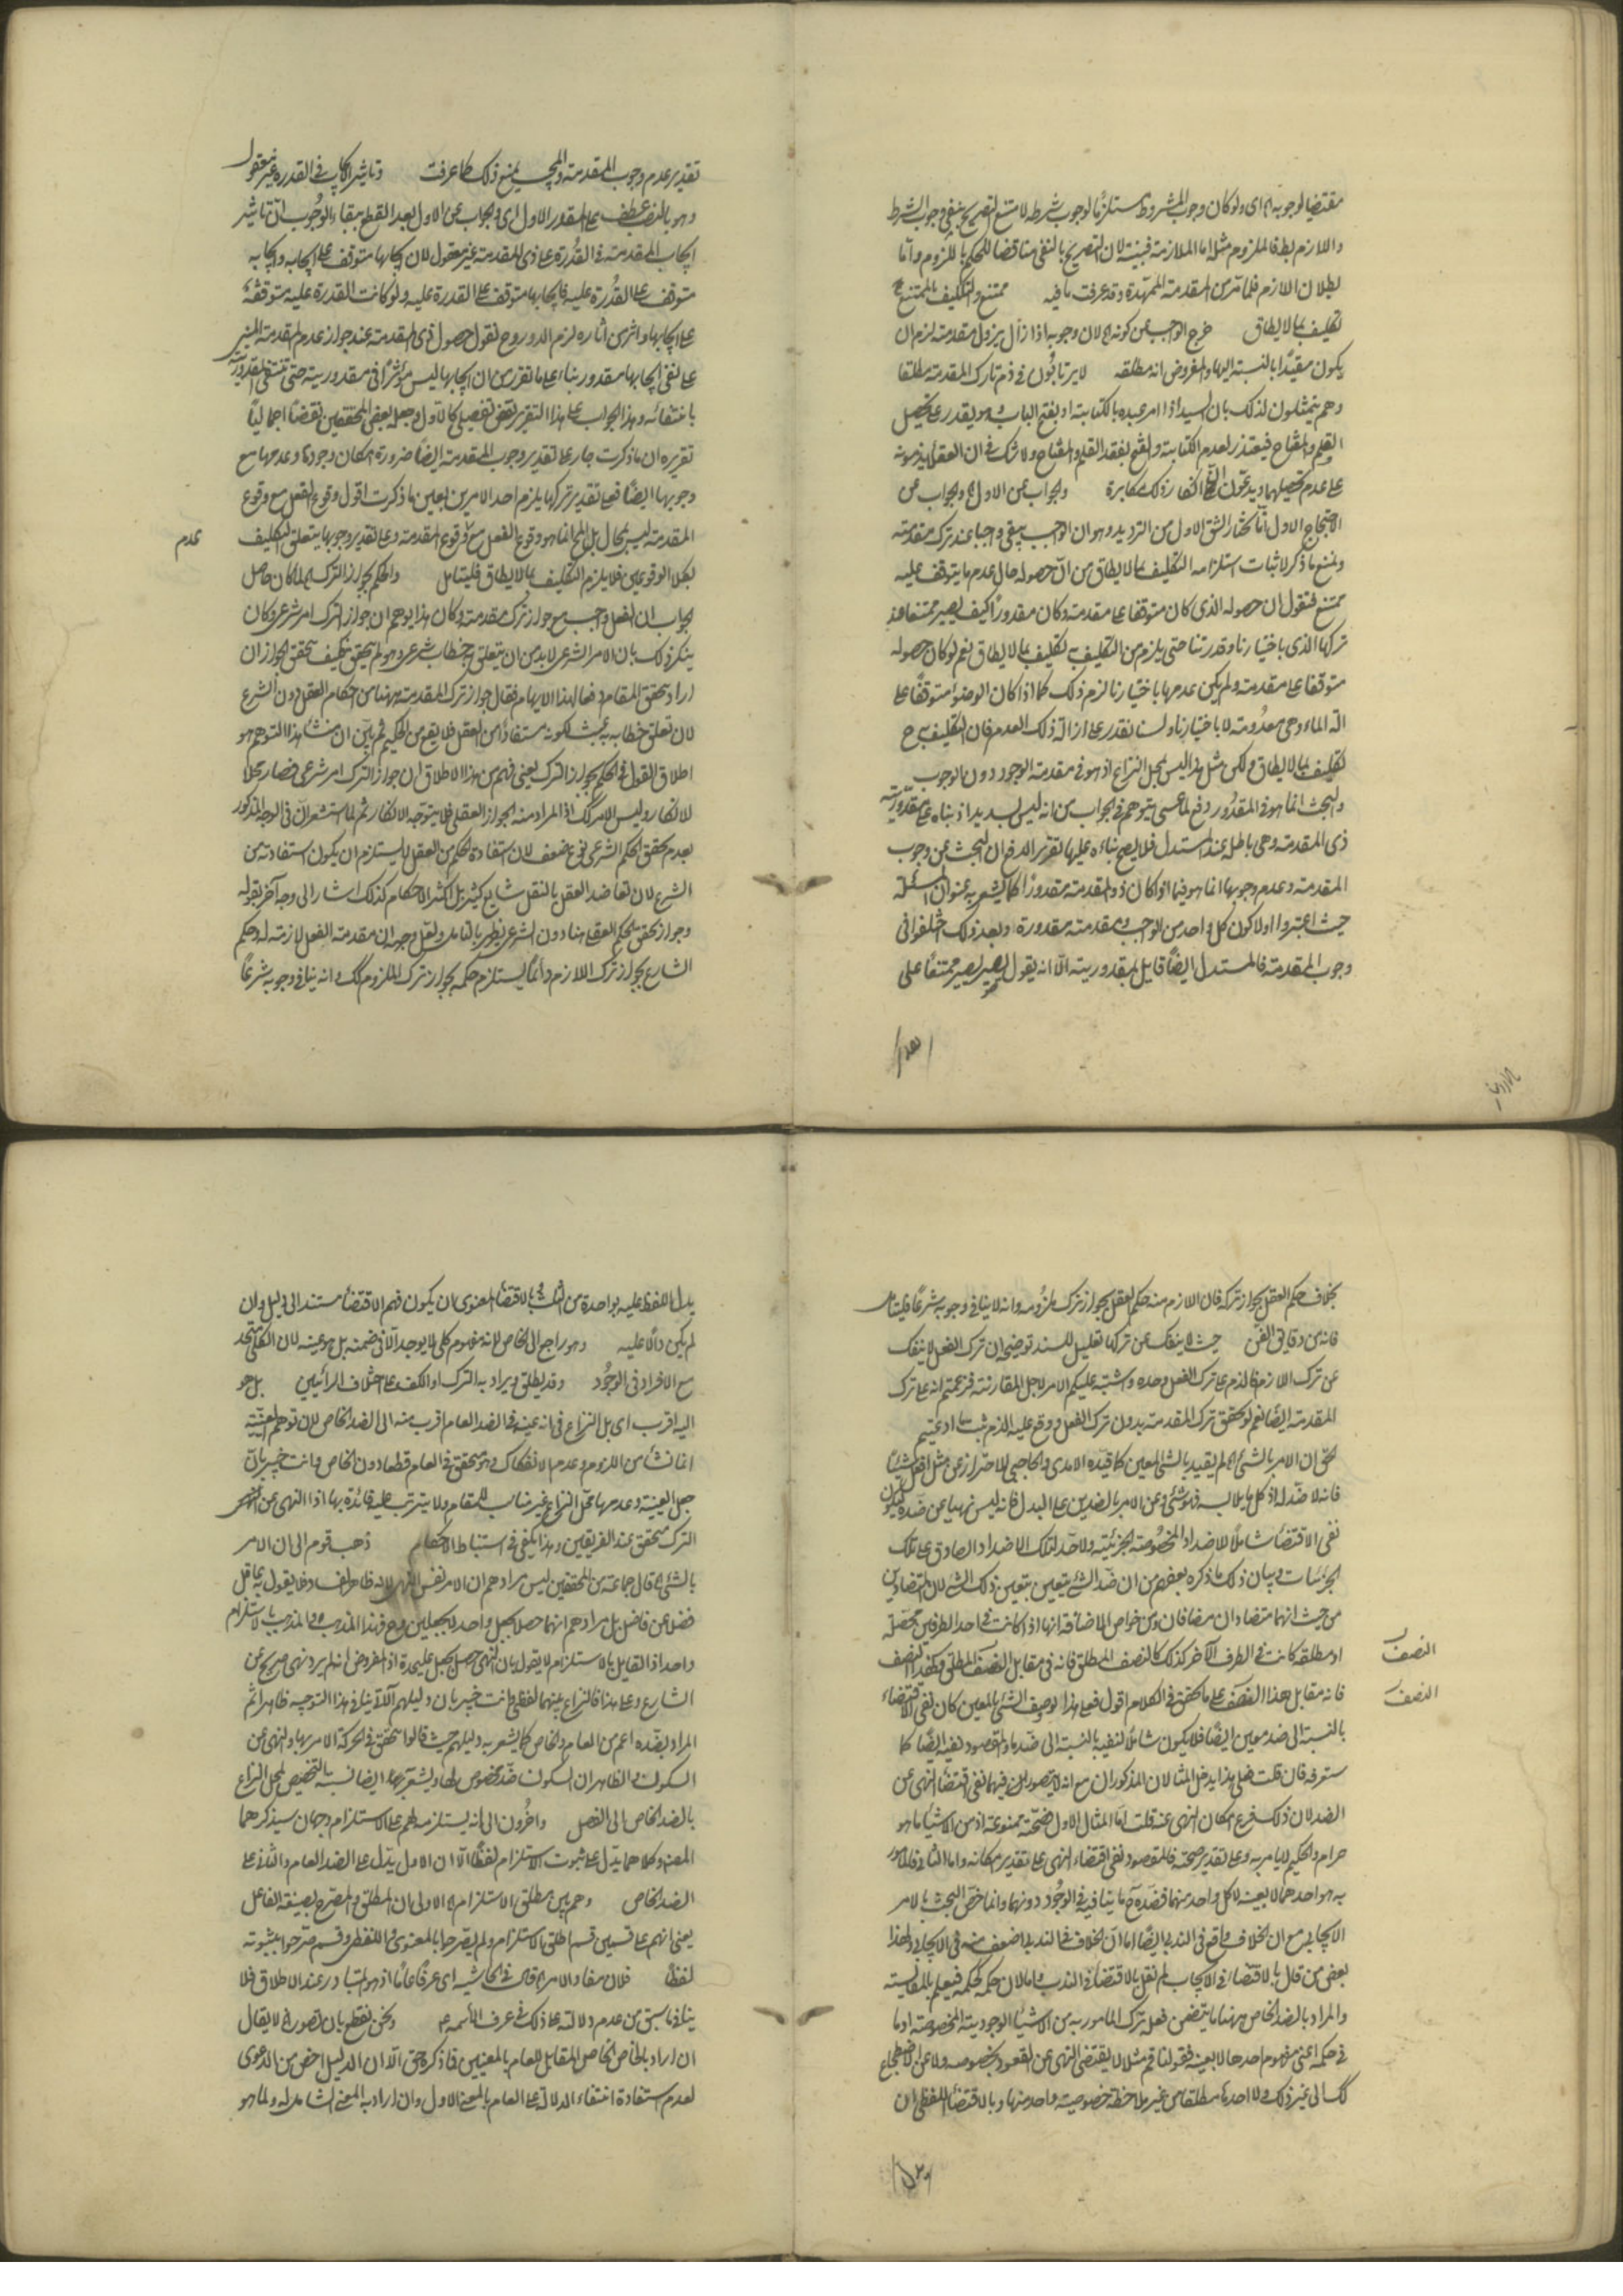 مقتضيا لوجوبه اه اى ولو كان وجوب المشروط مستلزما لوجوب شرطه لامتنع التصريح بنفى وجوب الشرط
واللازم بط فالملزوم مثله اما الملازمة فبينة لان التصريح بالنفى مناقضا للحكم باللزوم واما
بطلان اللازم فلما مر من المقدمة الممهدة وقد عرفت ما فيه ممتنع والتكليف بالممتنع ح
تكليف بما لا يطاق خرج الواجب عن كونه اه لان وجوبه اذا زال بزوال مقدمته لزم ان
يكون مقيدا بالنسبة اليها والمفروض انه مطلقه لا يرتابون فى ذم تارك المقدمة مطلقا
وهم يتمثلون لذلك بان السيد اذا امر عبده بالكتابة او بفتح الباب وهو يقدر على تحصيل
القلم والمفتاح فيعتذر لعدم الكتابة والفتح بفقد القلم والمفتاح ولا شك فى ان العقلاء يذمونه
على عدم تحصيلهما ويدعون ان انكار ذلك مكابرة والجواب عن الاول اه والجواب عن
الاحتجاج الاول انا نختار الشق الاول من الترديد وهو ان الواجب يبقى واجبا عند ترك مقدمته
ونمنع ما ذكر لاثبات استلزامه التكليف بما لا يطاق من ان حصوله حال عدم ما يتوقف عليه
ممتنع فنقول ان حصوله الذى كان متوقفا على مقدمته وكان مقدورا كيف يصير ممتنعا عند
تركها الذى باختيارنا وقدرتنا حتى يلزم من التكليف به تكليف بما لا يطاق نعم لو كان حصوله
متوقفا على مقدمته ولم يكن عدمها باختيارنا لزم ذلك كما اذا كان الوضوء متوقفا على
آلة الماء وهى معدومة لا باختيارنا ولسنا نقدر على ازالة ذلك العدم فان التكليف به ح
تكليف بما لا يطاق ولكن مثل هذا ليس محل النزاع اذ هو فى مقدمة الوجود دون الوجوب
والبحث انما هو فى المقدور دفع لما عسى يتوهم فى الجواب من انه ليس بسديد اذ بناه على مقدورية
ذى المقدمة وهى باطلة عند المستدل فلا يصح بناءه عليها تقرير الدفع ان البحث عن وجوب
المقدمة وعدم وجوبها انما هو فيما لو كان ذو المقدمة مقدورا كما يشعر به عنوان المسئلة
حيث اعتبروا اولا كون كل واحد من الواجب ومقدمته مقدورة وبعد ذلك اختلفوا فى
وجوب المقدمة فالمستدل ايضا قايل بمقدوريته الا انه يقول يصير ممتنعا على
تقدير عدم وجوب المقدمة والمجيب يمنع ذلك كما عرفت وتاثير الايجاب فى القدرة غير معقول
وهو بالنصب عطف على المقدر الاول اى والجواب عن الاول بعد القطع ببقاء الوجوب ان تاثير
ايجاب المقدمة فى القدرة على ذى المقدمة غير معقول لان ايجابها متوقف على ايجابه وايجابه
متوقف على القدرة عليه فايجابها متوقف على القدرة عليه ولو كانت القدرة عليه متوقفة
على ايجابها واثر من آثاره لزم الدور وح نقول حصول ذى المقدمة عند جواز عدم المقدمة المبنى
على نفى ايجابها مقدور بناء على ما تقرر من ان ايجابها ليس مؤثرا فى مقدوريته حتى تنتفى المقدورية
بانتفائه وهذا الجواب على هذا التقرير نقض تفصيلى كالاول وجعله بعض المحققين نقضا اجماليا
تقريره ان ما ذكرت جار على تقدير وجوب المقدمة ايضا ضرورة امكان وجودها وعدمها مع
وجوبها ايضا فعلى تقدير تركها يلزم احد الامرين بعين ما ذكرت اقول وقوع الفعل مع وقوع
المقدمة ليس بمحال بل المحال انما هو وقوع الفعل مع وقوع المقدمة وعلى تقدير وجوبها يتعلق التكليف
عدم
بكلا الوقوعين فلا يلزم التكليف بما لا يطاق فليتامل والحكم بجواز الترك اه لما كان حاصل
الجواب ان الفعل واجب مع جواز ترك مقدمته وكان هذا يوهم ان جواز الترك امر شرعى وكان
ينكر ذلك بان الامر الشرعى لابد من ان يتعلق به خطاب شرعى وهو لم يتحقق فكيف تحقق الجواز ان
اراد تحقق المقام دفعا لهذا الايهام فقال جواز ترك المقدمة ههنا من احكام العقل دون الشرع
لان تعلق خطابه به عبث لكونه مستفادا من العقل فلا يقع من الحكيم ثم بين ان منشأ هذا التوهم هو
اطلاق القول فى الحكم بجواز الترك يعنى فهم من هذا الاطلاق ان جواز الترك امر شرعى فصار محلا
للانكار وليس الامر كك اذ المراد منه الجواز العقلى فلا يتوجه الانكار ثم لما استشعر ان فى الوجه المذكور
لعدم تحقق الحكم الشرعى نوع ضعف لان استفادة الحكم من العقل لا يستلزم ان يكون استفادته من
الشرع لان تعاضد العقل بالنقل شايع كثير بل اكثر الاحكام كذلك اشار الى وجه آخر بقوله
وجواز تحقق الحكم العقلى هنا دون الشرعى يظهر بالتامل ولعل وجهه ان مقدمة الفعل لازمة له وحكم
الشارع بجواز ترك اللازم دائما يستلزم حكمه بجواز ترك الملزوم كك وانه ينافى وجوبه شرعا
بخلاف حكم العقل بجواز تركه فان اللازم منه حكم العقل بجواز ترك ملزومه وانه لا ينافى وجوبه شرعا فليتامل
فانه من دقايق الفن حيث لا ينفك عن تركها تعليل للسند توضيحه ان ترك الفعل لا ينفك
عن ترك اللازم فالذم على ترك الفعل وحده واشتبه عليكم الامر لاجل المقارنة فزعمتم انه على ترك
المقدمة ايضا نعم لو تحقق ترك المقدمة بدون ترك الفعل ووقع عليه الذم ثبت ما ادعيتم
الحق ان الامر بالشئ اه لم يقيد بالشئ المعين كما قيده الآمدى والحاجبى للاحتراز عن مثل افعل شيئا
فانه لا ضد له اذ كل ما يلابسه فهو شئ وعن الامر بالضدين على البدل فانه ليس نهيا عن ضده ليكون
نفى الاقتضاء شاملا للاضداد المخصوصة الجزئية ولاحد لتلك الاضداد الصادق على تلك
الجزئيات وبيان ذلك ما ذكره بعضهم من ان ضد الشئ يتعين بتعين ذلك الشئ لان المتضادين
من حيث انهما متضادان مضافان ومن خواص الاضافة انها اذا كانت فى احد الطرفين محصلة
او مطلقة كانت فى الطرف الآخر كذلك كالنصف المطلق فانه فى مقابل الضعف المطلق وكهذا النصف
النصف
فانه مقابل هذا الضعف على ما تحقق فى الكلام اقول فعلى هذا لو وصف الشئ بالمعين كان نفى الاقتضاء
النصف
بالنسبة الى ضد معين ايضا فلا يكون شاملا لنفيه بالنسبة الى ضد ما والمقصود نفيه ايضا كما
ستعرفه فان قلت فعلى هذا يدخل المثالان المذكوران مع انه لا يتصور فيهما نفى اقتضاء النهى عن
الضد لان ذلك فرع امكان النهى عنه قلت اما المثال الاول فصحته ممنوعة اذ من الاشياء ما هو
حرام والحكيم لا يامر به وعلى تقدير صحته فالمقصود نفى اقتضاء النهى على تقدير امكانه واما الثانى فالمامور
به هو احدهما لا بعينه لا كل واحد منهما فضده ح ما ينافيه فى الوجود دونهما وانما خص البحث بالامر
الايجابى مع ان الخلاف واقع فى الندبى ايضا اما لان الخلاف فى الندبى اضعف منه فى الايجابى ولهذا
بعض من قال بالاقتضاء فى الايجاب لم نقل بالاقتضاء فى الندب واما لان حكمه كحكمه فيعلم بالمقايسة
والمراد بالضد الخاص ههنا ما يتضمن فعله ترك المامور به من الاشياء الوجودية المخصوصة او ما
فى حكمه اعنى مفهوم احدها لا بعينه فقولنا قم مثلا لا يقتضى النهى عن القعود بخصوصه ولا عن الاضطجاع
كك الى غير ذلك ولا احدها مطلقا من غير ملاحظة خصوصية واحد منها وبالاقتضاء اللفظى ان
يدل اللفظ عليه بواحدة من الثلث وبالاقتضاء المعنوى ان يكون فهم الاقتضاء مستندا الى دليل وان
لم يكن دالا عليه وهو راجع الى الخاص لانه مفهوم كلى لا يوجد الا فى ضمنه بل هو عينه لان الكلى متحد
مع الافراد فى الوجود وقد يطلق ويراد به الترك او الكف على اختلاف الرائيين بل هو
اليه اقرب اى بل النزاع فى انه عينه فى الضد العام اقرب منه الى الضد الخاص لان توهم العينية
انما نشأ من اللزوم وعدم الانفكاك وهو متحقق فى العام قطعا دون الخاص وانت خبير بان
جعل العينية وعدمها محل النزاع غير مناسب للمقام ولا يترتب عليه فائدة بها اذا النهى عن
الترك متحقق عند الفريقين وهذا يكفى فى استنباط الاحكام ذهب قوم الى ان الامر
بالشئ اه قال جماعة من المحققين ليس مرادهم ان الامر نفس النهى لانه ظاهر الفساد فلا يقول به عاقل
فضلا عن فاضل بل مرادهم انهما حصلا بجعل واحد لا بجعلين وح فهذا المذهب والمذهب بالاستلزام
واحد اذا القايل بالاستلزام لا يقول بان النهى حصل بجعل عليحدة اذ المفروض انه لم يرد نهى صريح عن
الشارع وعلى هذا فالنزاع بينهما لفظى وانت خبير بان دليلهم الآتى ينافى هذا التوجيه ظاهرا ثم
المراد بضده اعم من العام والخاص كما يشعر به دليلهم حيث قالوا تحقق فى الحركة الامر بها والنهى عن
السكون والظاهر ان السكون ضد مخصوص لها ويشعر به ايضا نسبة التخصيص لمحل النزاع
بالضد الخاص الى الفصل وآخرون الى انه يستلزمه لهم على الاستلزام وجهان سيذكرهما
المصنف وكلاهما يدل على ثبوت الاستلزام لفظا الا ان الاول يدل على الضد العام والثانى على
الضد الخاص وهم بين مطلق للاستلزام اه الاولى ان المطلق والمصرح بصيغة الفاعل
يعنى انهم على قسمين قسم اطلق الاستلزام ولم يصرحوا بالمعنوى واللفظى وقسم صرحوا بثبوته
لفظا فلان مفاد الامر اه قال فى الحاشية اى عرفا عاما اذ هو المتبادر عند الاطلاق فلا
ينافى ما سبق من عدم دلالته على ذلك فى عرف الائمة ع ونحن نقطع بان تصور اه لا يقال
ان اراد بالخاص الخاص المقابل للعام بالمعنيين فما ذكره حق الا ان الدليل اخص من الدعوى
لعدم استفادة انتفاء الدلالة على العام بالمعنى الاول وان اراد به المعنى الشامل له ولما هو